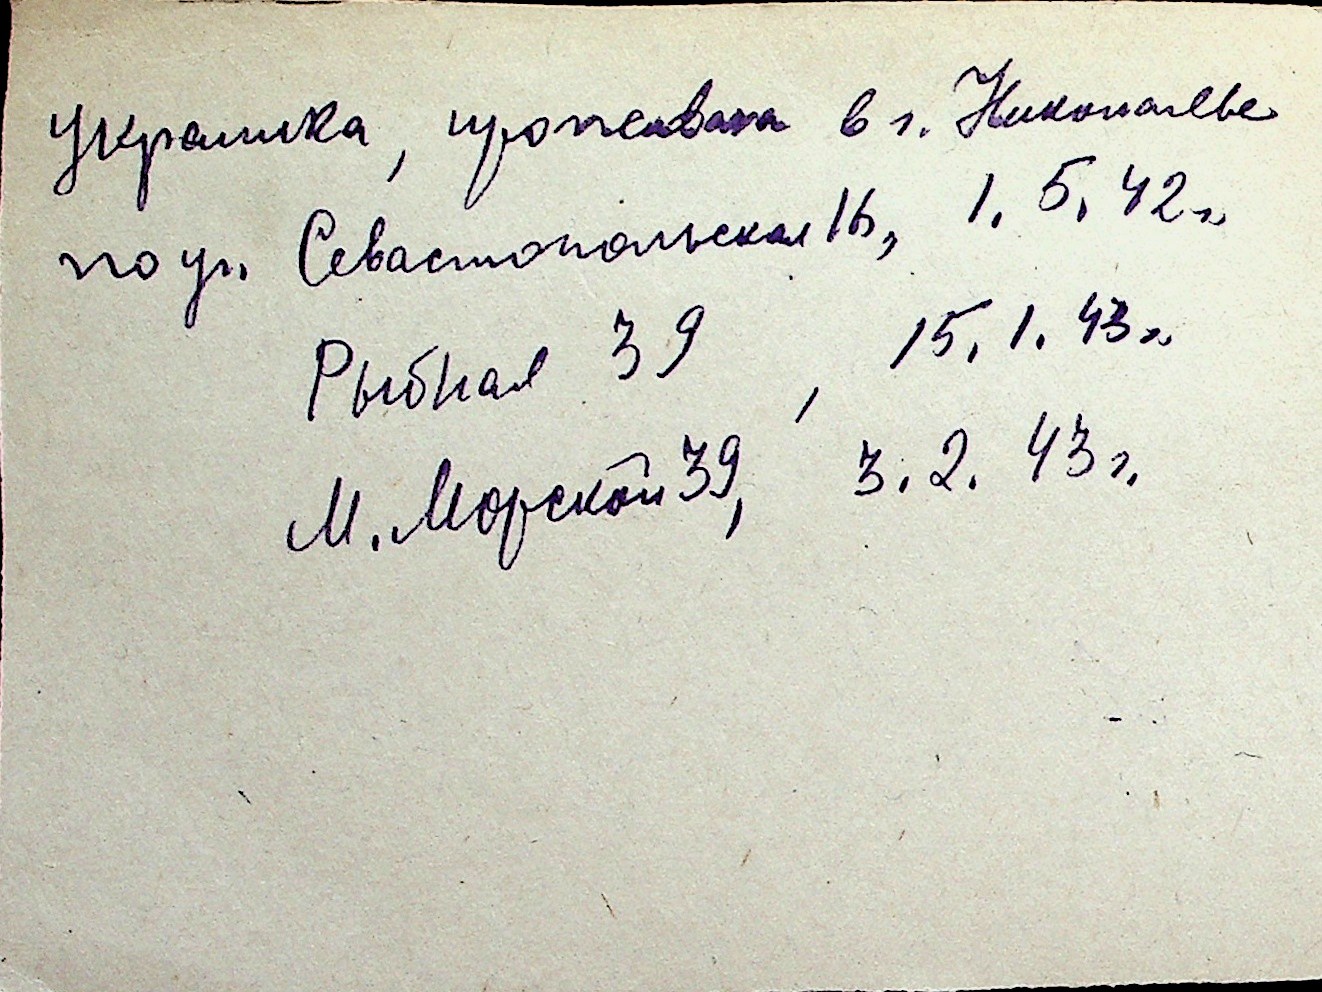 украинка, проживала в г. Николаеве
по ул. Севастопольская 16, 1.5.42 г.
Рыбная 39, 15.1.43 г.
М. Морской 39, 3.2.43 г.